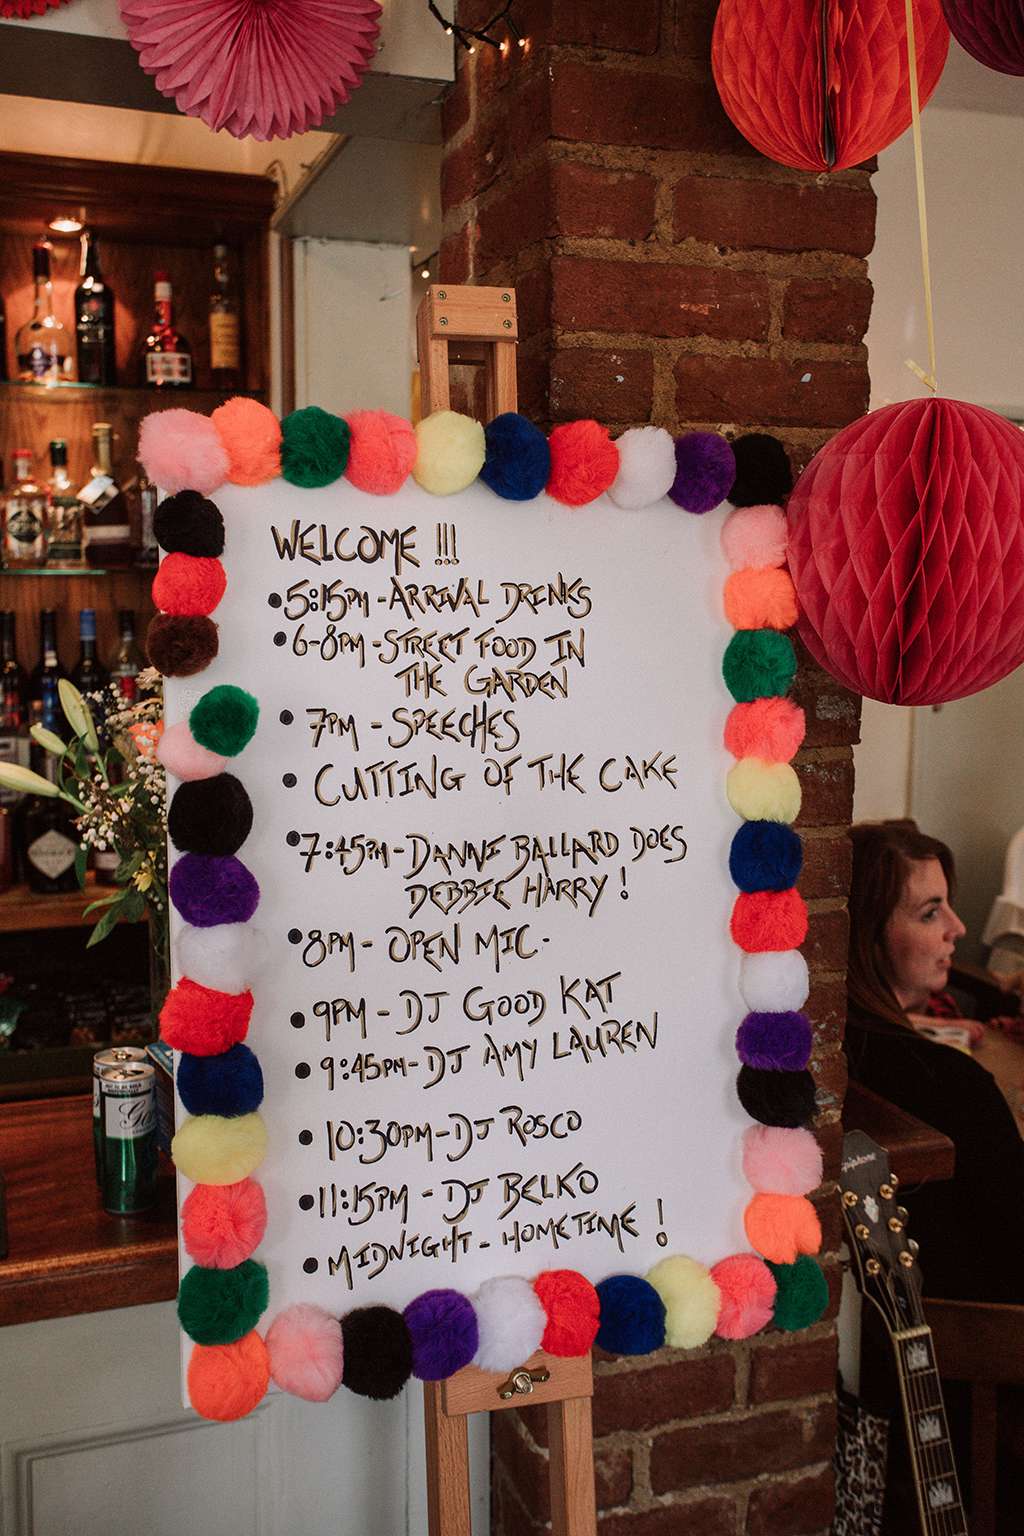 WELCOME !!!
• 5:15PM - ARRIVAL DRINKS
• 6-8PM - STREET FOOD IN
THE GARDEN
• 7PM - SPEECHES
• CUTTING OF THE CAKE
• 7:45PM - DANNI BALLARD DOES
DEBBIE HARRY !
• 8PM - OPEN MIC -
• 9PM - DJ GOOD KAT
• 9:45PM - DJ AMY LAUREN
• 10:30PM - DJ ROSCO
• 11:15PM - DJ BELKO
• MIDNIGHT - HOMETIME !
Epiphone